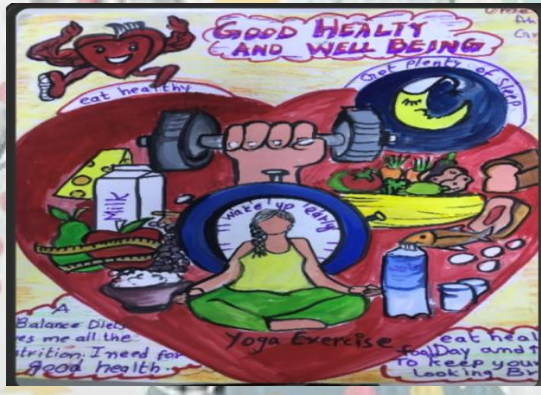 GOOD HEALTY
AND WELL BEING
eat healthy
Got plenty of sleep
MILK
wake up early
Yoga Exercise
A
Balance Diet
es me all the
trition. I need for
good health.
eat heal
food Day and
To keep your
Looking Br